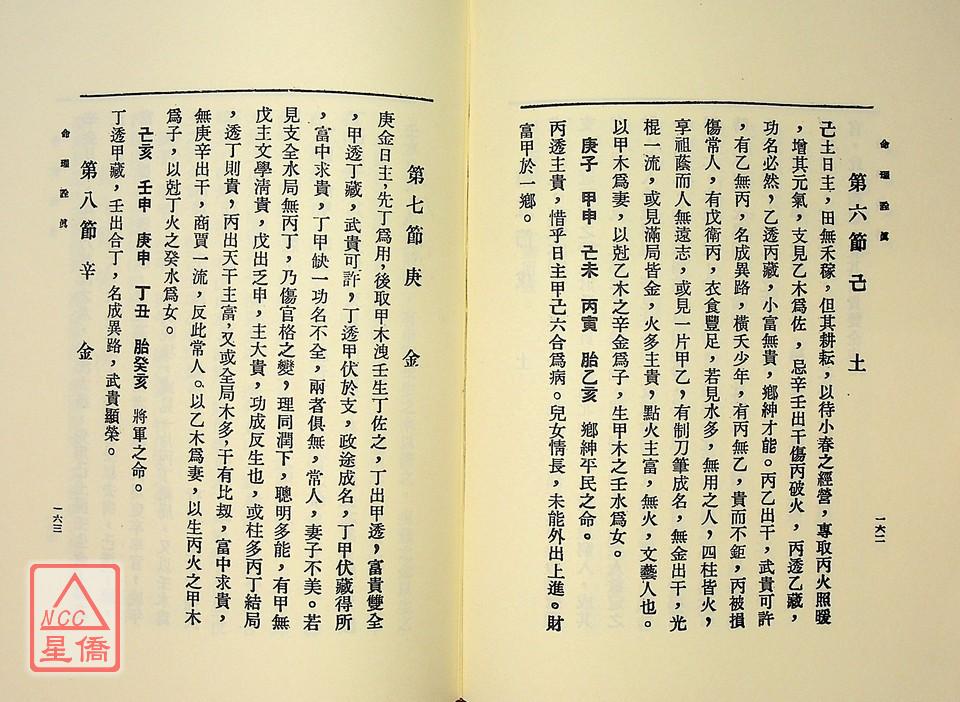 命理詮眞
第六節 己土
己土日主，田無禾稼，但其耕耘，以待小春之經營，專取丙火照暖
，增其元氣，支見乙木爲佐，忌辛壬出干傷丙破火，丙透乙藏，
功名必然，乙透丙藏，小富無貴，鄉紳才能。丙乙出干，武貴可許
，有乙無丙，名成異路，橫夭少年，有丙無乙，貴而不鉅，丙被損
傷常人，有戊衛丙，衣食豐足，若見水多，無用之人，四柱皆火，
享祖蔭而人無遠志，或見一片甲乙，有制刀筆成名，無金出干，光
棍一流，或見滿局皆金，火多主貴，點火主富，無火，文藝人也。
以甲木爲妻，以尅乙木之辛金爲子，生甲木之壬水爲女。
庚子 甲申 己未 丙寅 胎乙亥 鄉紳平民之命。
丙透主貴，惜乎日主甲己六合爲病。兒女情長，未能外出上進。財
富甲於一鄉。
一六二
第七節 庚金
庚金日主，先丁爲用，後取甲木洩壬生丁佐之，丁出甲透，富貴雙全
，甲透丁藏，武貴可許，丁透甲伏於支，政途成名，丁甲伏藏得所
，富中求貴，丁甲缺一功名不全，兩者俱無，常人，妻子不美。若
見支全水局無丙丁，乃傷官格之變，理同潤下，聰明多能，有甲無
戊主文學清貴，戊出乏申，主大貴，功成反生也，或柱多丙丁結局
，透丁則貴，丙出天干主富，又或全局木多，干有比刼，富中求貴，
無庚辛出干，商賈一流，反此常人。以乙木爲妻，以生丙火之甲木
爲子，以尅丁火之癸水爲女。
己亥 壬申 庚申 丁丑 胎癸亥 將軍之命。
丁透甲藏，壬出合丁，名成異路，武貴顯榮。
第八節 辛金
命理詮眞
一六三
NCC
星僑